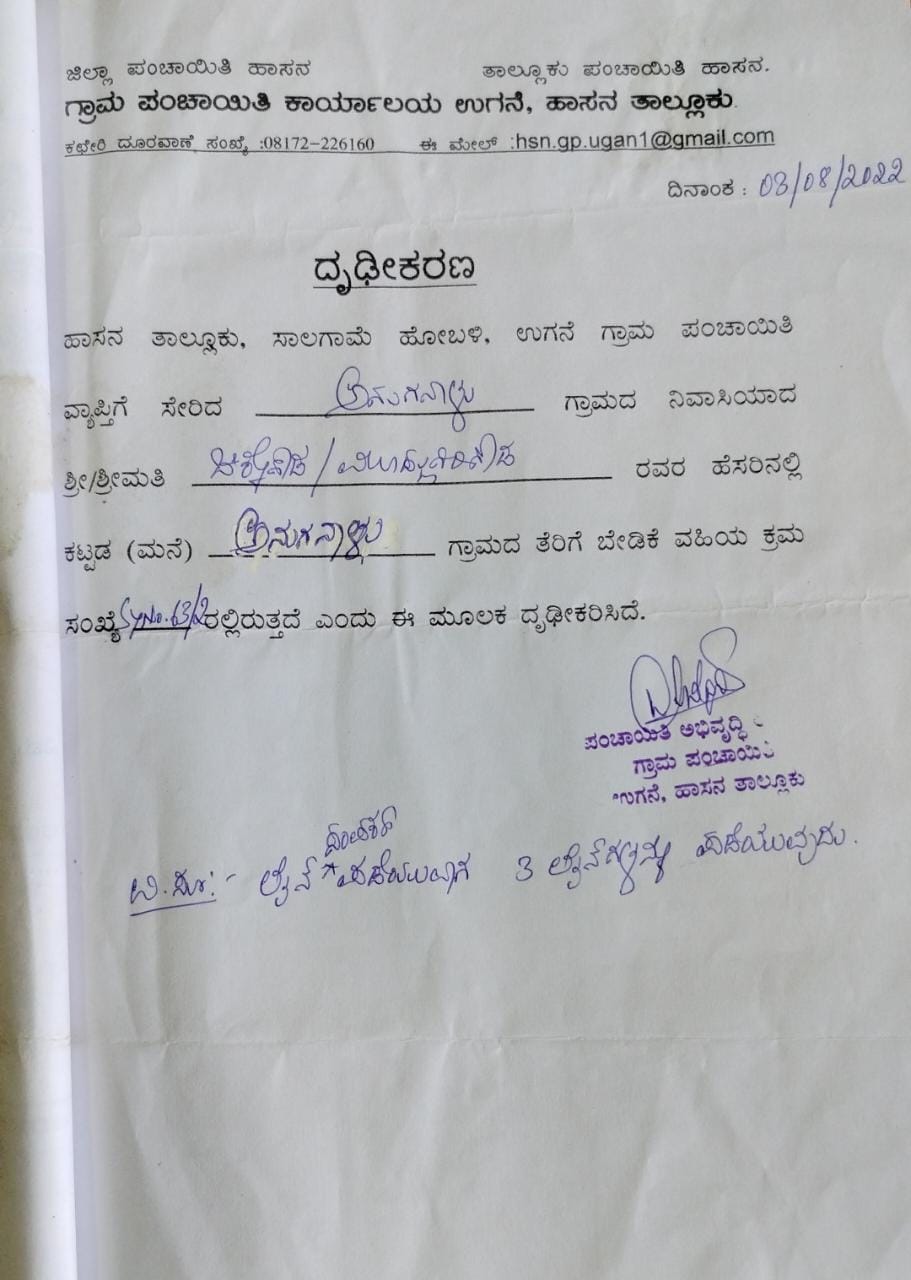 ಜಿಲ್ಲಾ ಪಂಚಾಯಿತಿ ಹಾಸನ ತಾಲ್ಲೂಕು ಪಂಚಾಯಿತಿ ಹಾಸನ.
ಗ್ರಾಮ ಪಂಚಾಯಿತಿ ಕಾರ್ಯಾಲಯ ಉಗನೆ, ಹಾಸನ ತಾಲ್ಲೂಕು.
ಕಛೇರಿ ದೂರವಾಣಿ ಸಂಖ್ಯೆ :08172-226160 ಈ ಮೇಲ್ :hsn.gp.ugan1@gmail.com
ದಿನಾಂಕ : 03/08/2022
ದೃಢೀಕರಣ
ಹಾಸನ ತಾಲ್ಲೂಕು, ಸಾಲಗಾಮೆ ಹೋಬಳಿ, ಉಗನೆ ಗ್ರಾಮ ಪಂಚಾಯಿತಿ
ವ್ಯಾಪ್ತಿಗೆ ಸೇರಿದ ಅನುಗನಾಳು ಗ್ರಾಮದ ನಿವಾಸಿಯಾದ
ಶ್ರೀ/ಶ್ರೀಮತಿ ರವರ ಹೆಸರಿನಲ್ಲಿ
ಕಟ್ಟಡ (ಮನೆ) ಅನುಗನಾಳು ಗ್ರಾಮದ ತೆರಿಗೆ ಬೇಡಿಕೆ ವಹಿಯ ಕ್ರಮ
ಸಂಖ್ಯೆ Sy No. 63/2 ರಲ್ಲಿರುತ್ತದೆ ಎಂದು ಈ ಮೂಲಕ ದೃಢೀಕರಿಸಿದೆ.
ಪಂಚಾಯಿತಿ ಅಭಿವೃದ್ಧಿ
ಗ್ರಾಮ ಪಂಚಾಯಿತಿ
ಉಗನೆ, ಹಾಸನ ತಾಲ್ಲೂಕು
ವಿ.ಸೂ:- ಲೈನ್ ಪಡೆಯುವಾಗ 3 ಲೈನ್‌ಗಳನ್ನು ಪಡೆಯುವುದು.